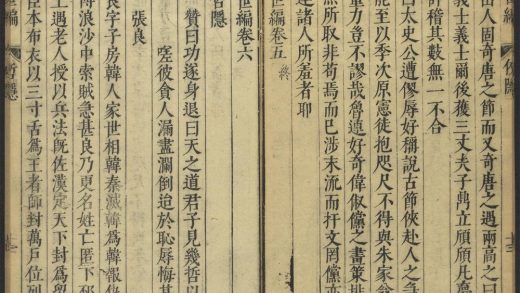 俠隱
人固奇唐之節而又奇唐之遇兩高之曰
義士義士爾後獲三丈夫子鵲立頎頎凡
時稽其數無一不合
曰太史公遭僇辱好稱說古節俠赴人之急
能至以季次原憲徒抱咫尺不得與朱家
重力竟不謬哉魯連好奇偉俶儻之畫策排
無所取非苟焉而已涉末流而扞文罔黨
進諸人所羞者耶
世編卷五 終
世編卷六
哲隱
贊曰功遂身退曰天之道君子見幾哲以
嗟彼貪人漏盡瀾倒迫於恥辱悔其
張良
良字子房韓人家世相韓秦滅韓爲韓報
博浪沙中索賊急甚良乃更名姓亡匿下
上遇老人授以兵法旣佐漢定天下封爲
臣本布衣以三寸舌爲王者師封萬戶位列
世編 哲隱